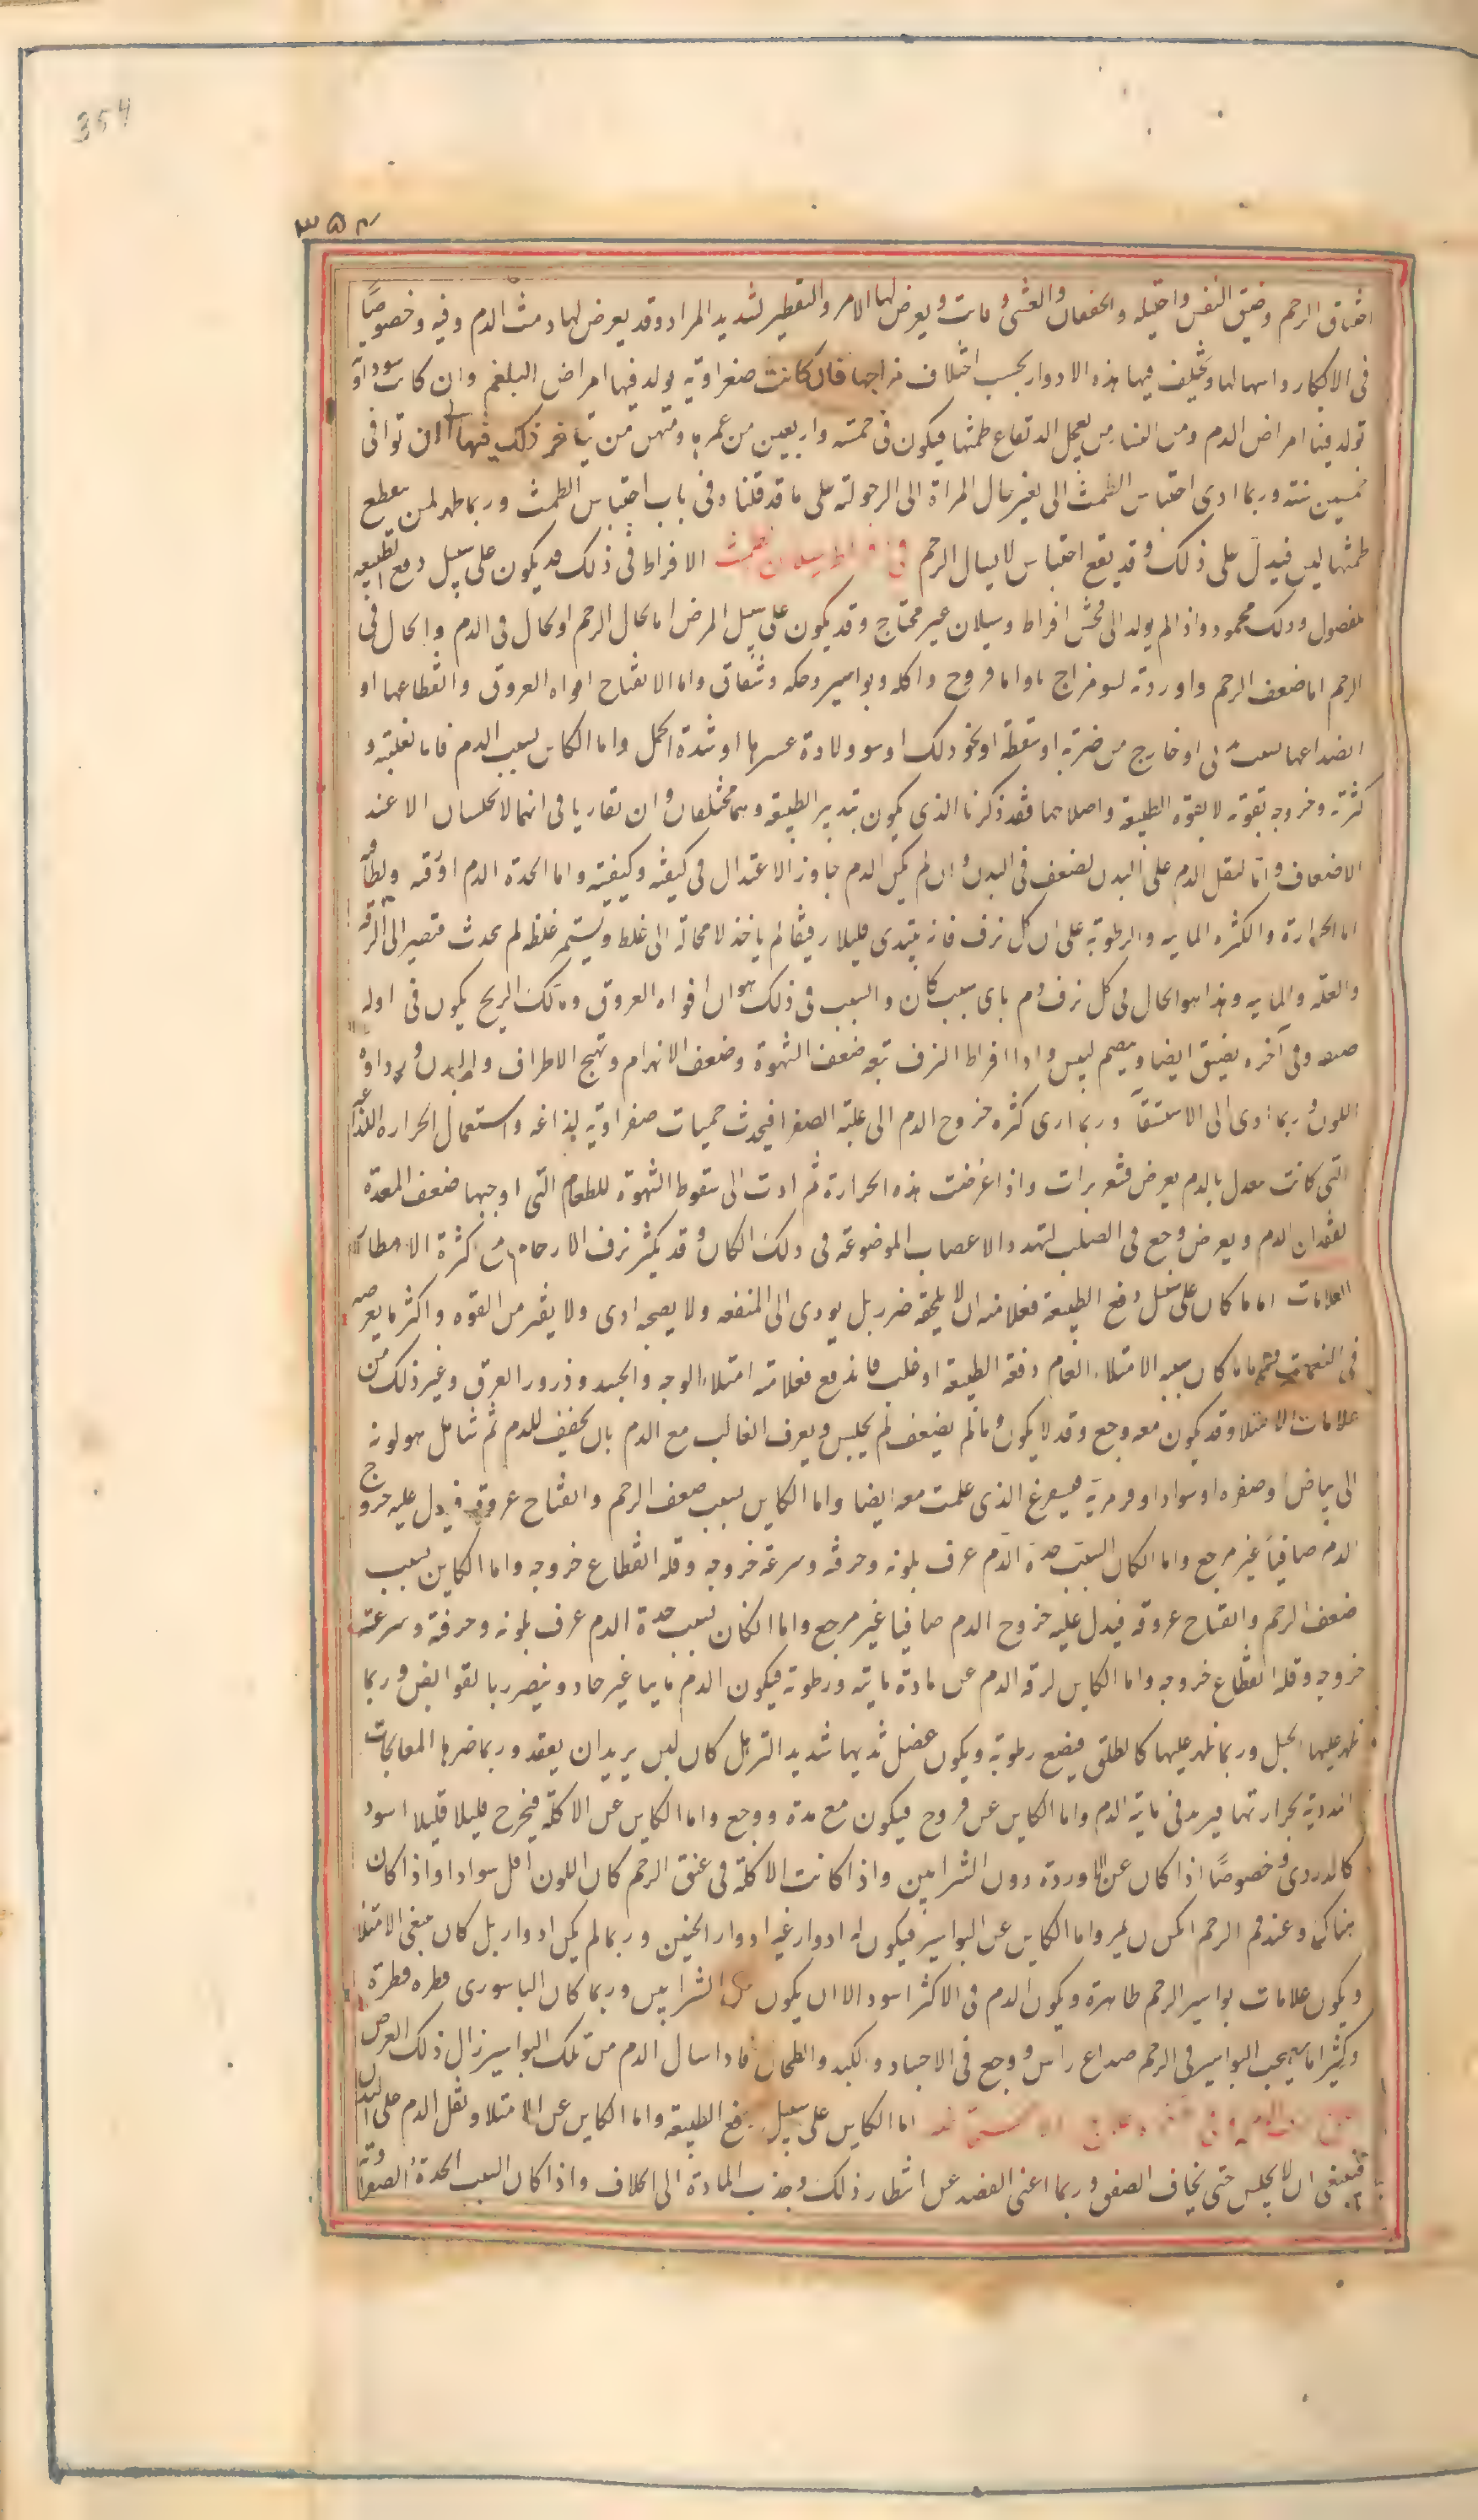 354
٣٥٤
اختناق الرحم وضيق النفس واختلاله والخفقان والغشى وماتت ويعرض لها الامر والتقطير لتسديد المراد وقد يعرض لها ونفث الدم وقيه وخصوصًا
فى الابكار واسهالها وتختلف فيها هذه الادوار بحسب اختلاف مزاجها فان كانت صفراوية يولد فيها امراض البلغم وان كانت سوداوية
تولد فيها امراض الدم ومن النسا من يعجل ارتفاع طمثها فيكون فى خمسة واربعين من عمرها ومنهن من يتاخر ذلك فيها الى ان توافى
خمسين سنة وربما ادى احتباس الطمث الى تغير حال المراة الى الرجولة على ما قد قلنا وفى باب احتباس الطمث وربما ظهر لمن ينقطع
طمثها لبن فيدل على ذلك وقد يقع احتباس لانسال الرحم فى افراط سيلان الطمث الافراط فى ذلك قد يكون على سبيل دفع الطبيعه
للفضول وذلك محمود واذا لم يولد الى فحش افراط وسيلان غير محتاج وقد يكون على سبيل المرض اما لحال الرحم او لحال فى الدم والحال فى
الرحم اما ضعف الرحم واوردته لسو مزاج ما واما قروح واكله وبواسير وحكه وشقاق واما الانفتاح افواه العروق وانقطاعها او
انصداعها لسبب بدنى او خارج من ضربة او سقطة او نحو ذلك او سو ولادة عسرها او شدة الحمل واما الكاين لسبب الدم فاما لغلبته و
كثرته وخروجه بقوته لا بقوة الطبيعة واصلاحها فقد ذكرنا الذى يكون بتدبير الطبيعة وهما مختلفان وان تقاربا فى انهما لا يحبسان الا عند
الاضعاف واما لثقل الدم على البدن لضعف فى البدن وان لم يكن الدم جاوز الاعتدال فى كيفيته وكميته واما لحدة الدم اورقته ولطافته
اما الحرارة والكثره المايه والرطوبة على ان كل نزف فانه يبتدى قليلا رقيقا ثم ياخذ لا محالة الى غلظ ويستمر غلظه ثم يحدث فتصير الى الرقه
والقله والمايه وهذا هو الحال فى كل نزف دم باى سبب كان والسبب فى ذلك هو ان افواه العروق ومسالك الريح يكون فى اوله
ضيقه وفى آخره يضيق ايضا وينضم لليبس واذا افرط النزف تبعه ضعف الشهوة وضعف الانهضام وتهيج الاطراف والبدن ورداوه
اللون وربما ادى الى الاستسقآ وربما ادى كثره خروج الدم الى غلبة الصفرا فيحدث حميات صفراوية لذاعه واستعمال الحراره اللذاعه
التى كانت تعدل بالدم يعرض قشعريرات واذا عرضت هذه الحرارة ثم ادت الى سقوط الشهوة للطعام التى اوجبها ضعف المعدة
لفقدان الدم ويعرض وجع فى الصلب لتمدد الاعصاب الموضوعة فى ذلك المكان وقد يكثر نزف الارحام من كثرة الامطار
العلامات اما ما كان على سبيل دفع الطبيعة فعلامته ان لا يلحقه ضرر بل يودى الى المنفعه ولا يصحبه اذى ولا يغير من القوه واكثر ما يعرض
فى المنعمات واما ما كان سببه الامتلاء العام دفعة الطبيعة او غلب فاندفع فعلامته امتلاء الوجه والجسد ودرور العرق وغير ذلك من
علامات الامتلا وقد يكون معه وجع وقد لا يكون وما لم يضعف لم يحبس ويعرف الغالب مع الدم بان يجفف الدم ثم تتامل هو لونه
الى بياض او صفره او سواد او فرفرية فيستفرغ الذى علمت معه ايضا واما الكاين لسبب ضعف الرحم وانفتاح عروقه فيدل عليه خروج
الدم صافيا غير موجع واما الكان لسبب حدة الدم عرف بلونه وحرقته وسرعة خروجه وقله انقطاع خروجه واما الكاين لسبب
ضعف الرحم وانفتاح عروقه فيدل عليه خروج الدم صافيا غير موجع واما الكان لسبب حدة الدم عرف بلونه وحرقته وسرعته
خروجه وقله انقطاع خروجه واما الكاين لرقه الدم عن مادة ماية ورطوبة فيكون الدم ماييا غير حاد ويتضرر بالقوابض وربما
ظهر عليها الحبل وربما ظهر عليها كالطلق فيضع رطوبة ويكون عضل ثدييها شديد الترهل كان لبن يريد ان يعقد وربما ضرها المعالجات
الادوية بحرارتها فيزيد فى ماية الدم واما الكاين عن قروح فيكون مع مدة ووجع واما الكاين عن الاكلة فيخرج قليلا قليلا اسود
كالدردى وخصوصًا اذا كان عن الاوردة دون الشرايين واذا كانت الاكلة فى عنق الرحم كان اللون اقل سوادا واذا كان
هناك وعند فم الرحم امكن واما الكاين عن البواسير فيكون له ادوار غير ادوار الحيض وربما لم يكن ادوار بل كان يتبع الامتلا
ويكون علامات بواسير الرحم ظاهرة ويكون الدم فى الاكثر اسود الا ان يكون من الشرايين وربما كان الباسورى قطره قطرة
وكثيرا ما يصحب البواسير فى الرحم صداع راس ووجع فى الاحشاء والكبد والطحال فاذا سال الدم من تلك البواسير زال ذلك العرض
اما الكاين على سبيل دفع الطبيعة واما الكاين عن الامتلا وثقل الدم على البدن
فينبغى ان لا يحبس حتى يخاف الضعف وربما اغنى الفصد عن انتظار ذلك وجذب المادة الى الخلاف واذا كان السبب الحدة والصفرا